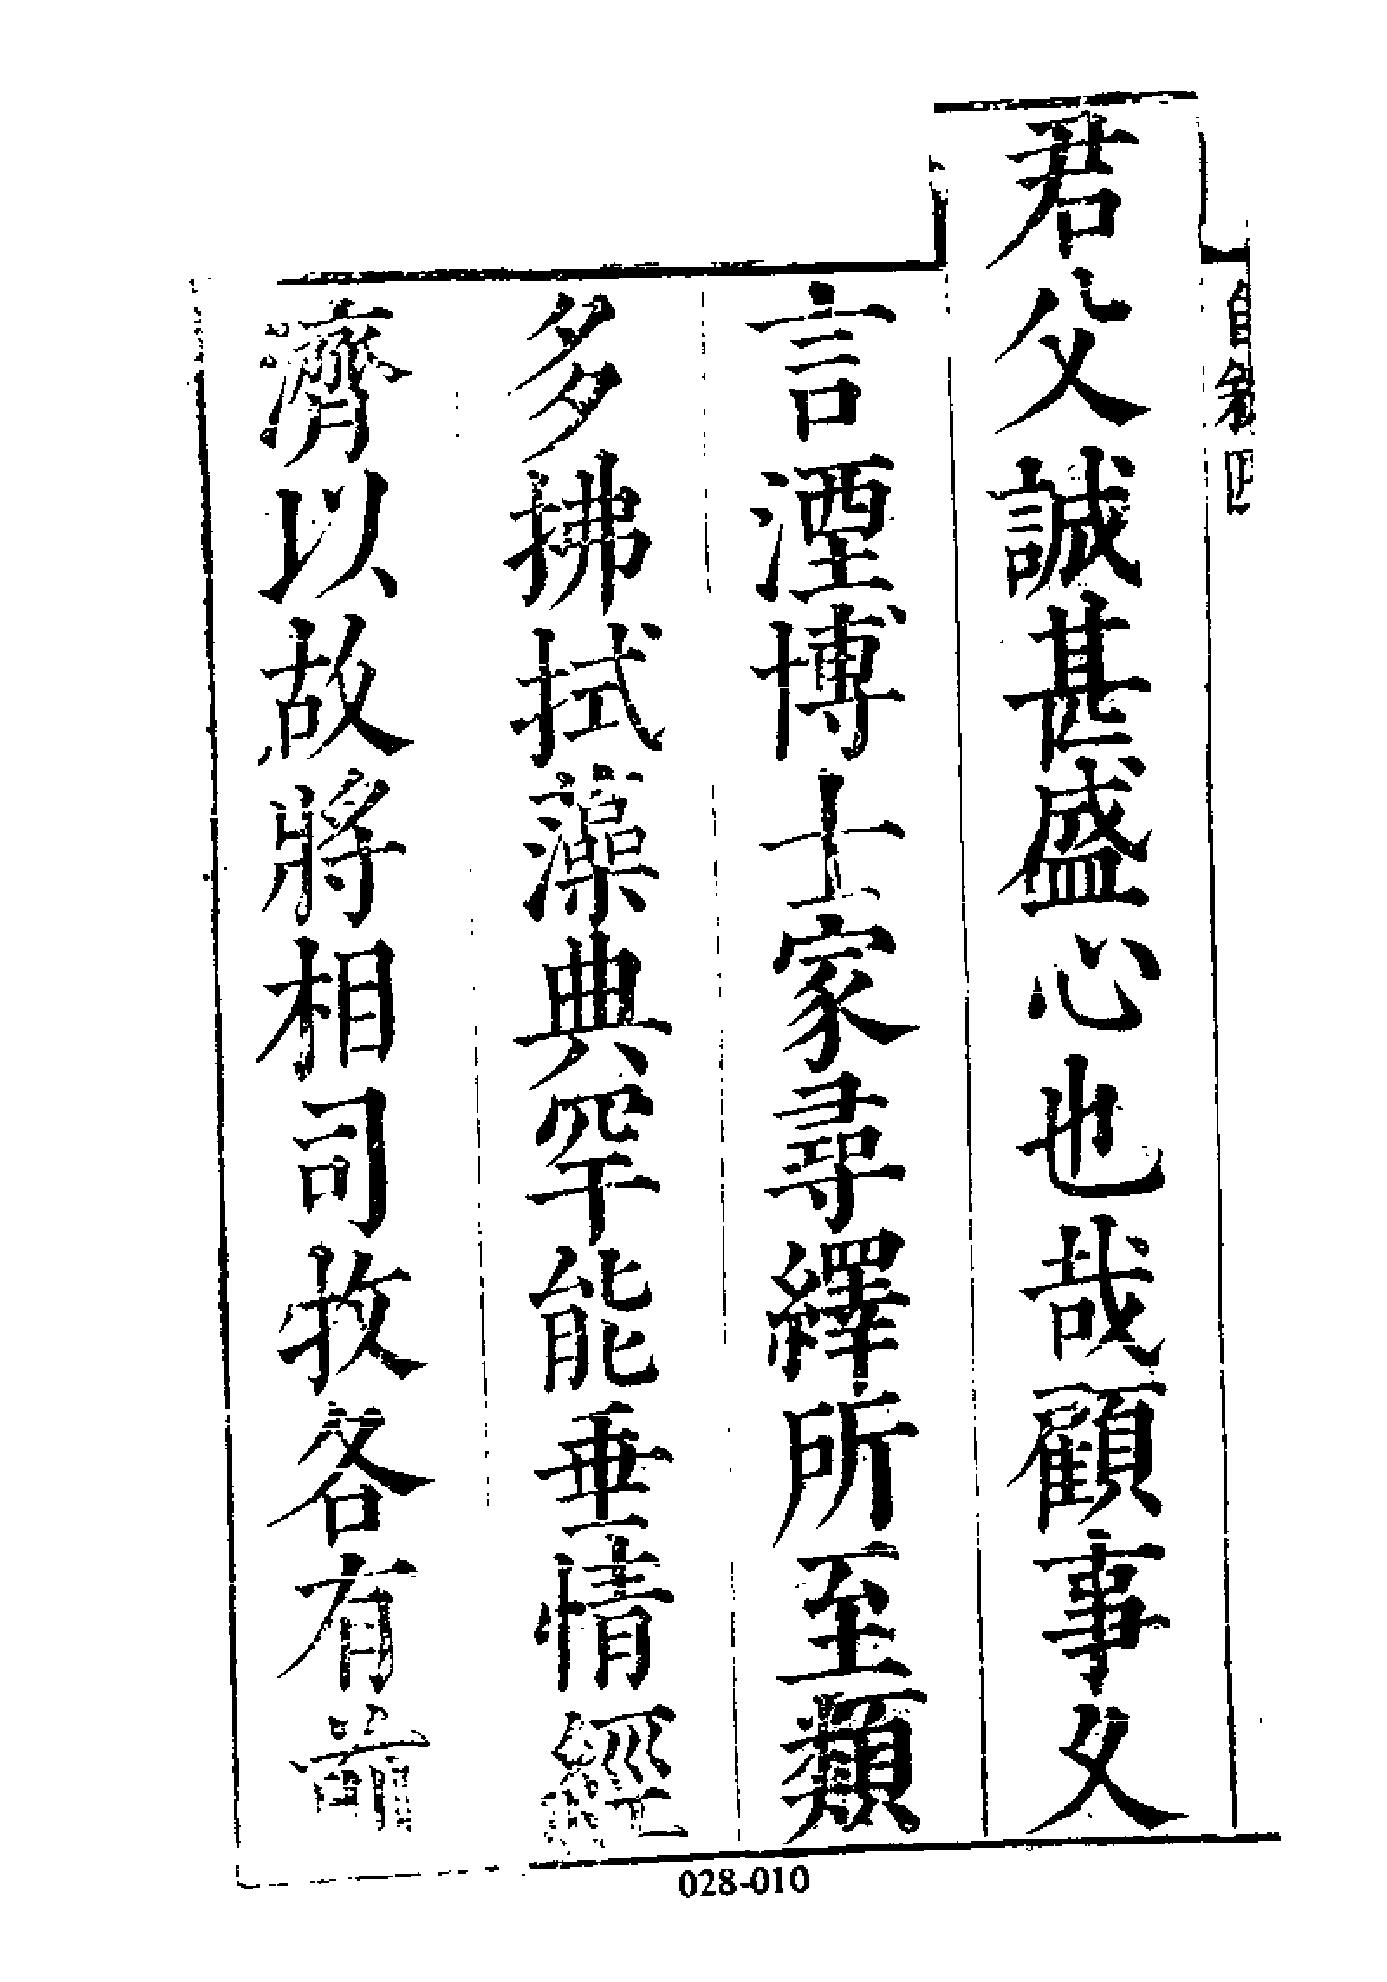 自敘 四
君父誠甚盛心也哉顧事久
言湮博士家尋繹所至類
多拂拭藻典罕能垂情經
濟以故將相司牧各有前
028-010